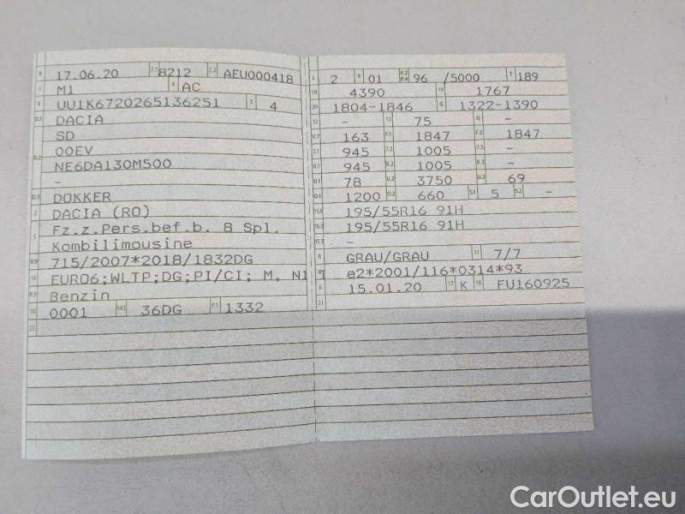 17.06.20 8212 AEU000418
M1 AC
UU1K6720265136251 4
DACIA
SD
00EV
NE6DA130M500
-
DOKKER
DACIA (RO)
Fz.z.Pers.bef.b. 8 Spl.
Kombilimousine
715/2007*2018/1832DG
EURO6;WLTP;DG;PI/CI; M, N1 I
Benzin
0001 36DG 1332
2 01 96 /5000 189
4390 1767
1804-1846 1322-1390
- 75 -
163 1847 1847
945 1005 -
945 1005 -
78 3750 69
1200 660 5 -
195/55R16 91H
195/55R16 91H
-
GRAU/GRAU 7/7
e2*2001/116*0314*93
15.01.20 K FU160925
CarOutlet.eu